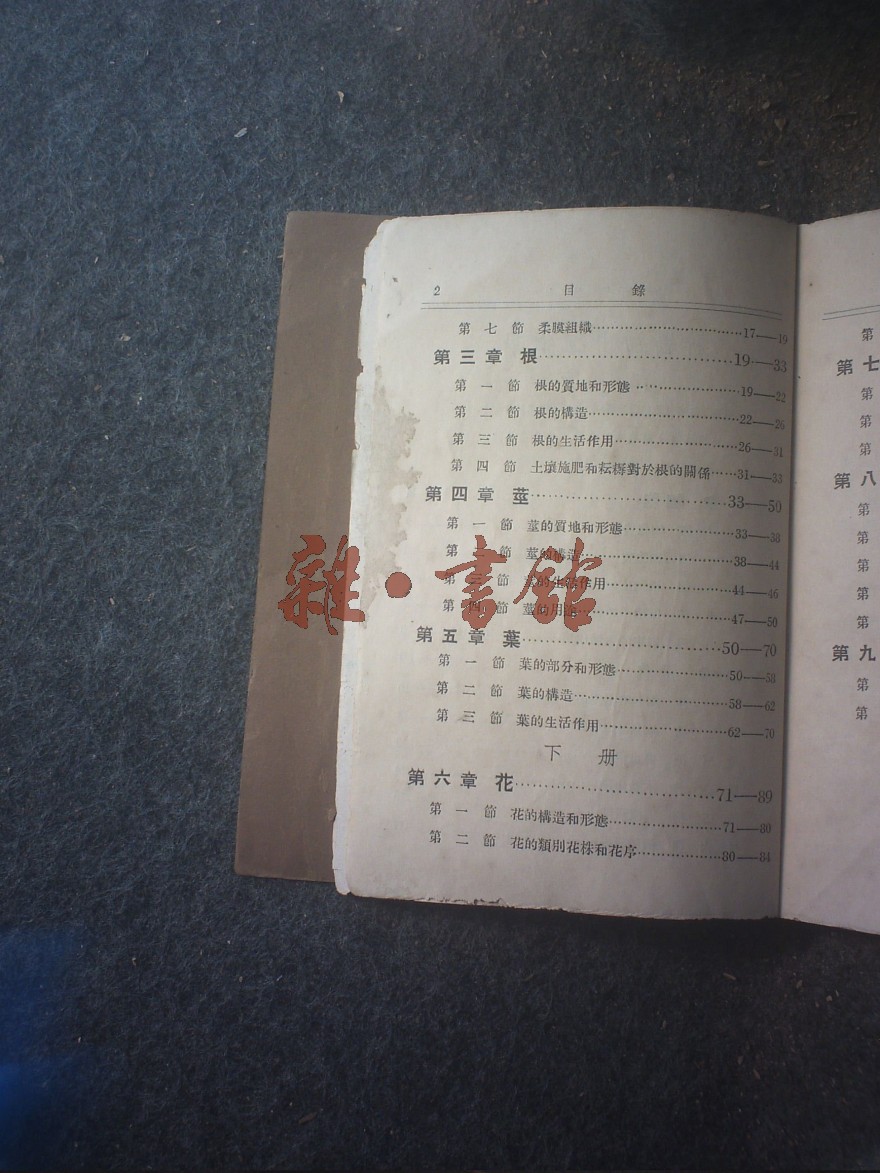 2 目錄
第七節 柔膜組織……17——19
第三章 根……19——33
第一節 根的質地和形態……19——22
第二節 根的構造……22——26
第三節 根的生活作用……26——31
第四節 土壤施肥和耘耨對於根的關係……31——33
第四章 莖……33——50
第一節 莖的質地和形態……33——38
第二節 莖的構造……38——44
第三節 莖的生活作用……44——46
第四節 莖的用途……47——50
第五章 葉……50——70
第一節 葉的部分和形態……50——58
第二節 葉的構造……58——62
第三節 葉的生活作用……62——70
下册
第六章 花……71——89
第一節 花的構造和形態……71——80
第二節 花的類別花株和花序……80——84
第
第七
第
第
第
第八
第
第
第
第
第
第九
第
第
雜·書館